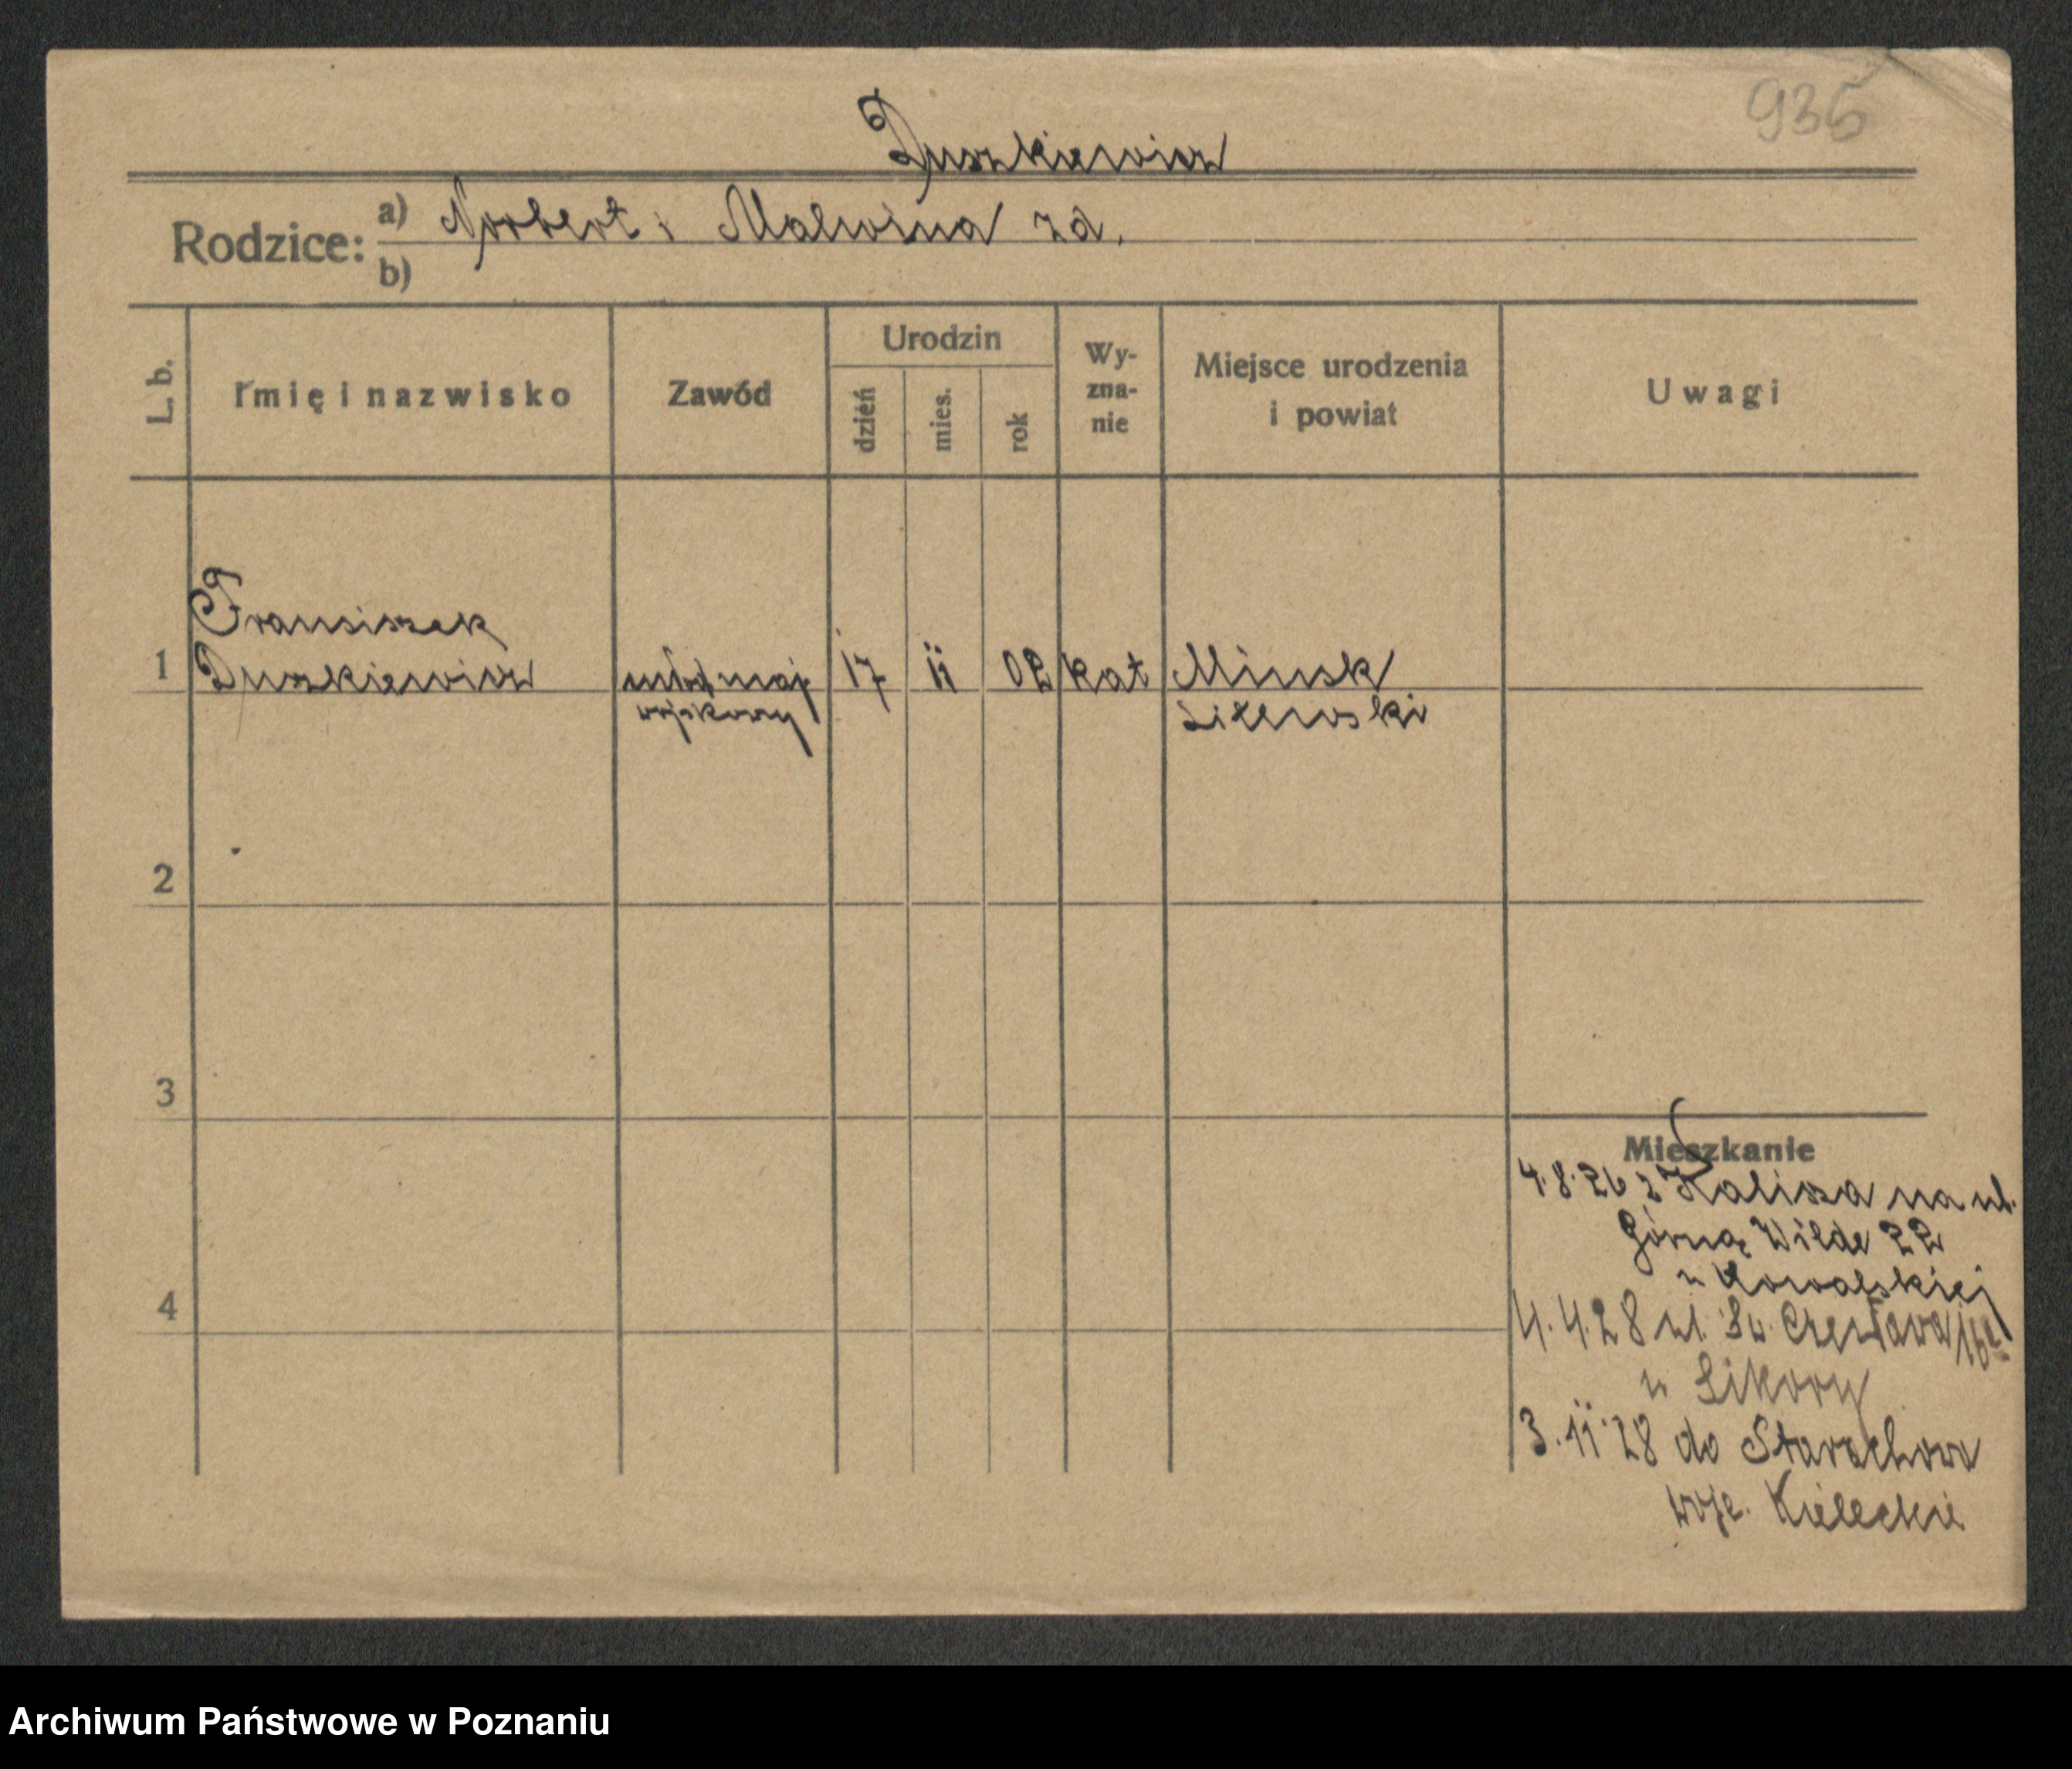 935
Duszkiewicz
Rodzice: a) Norbert i Malwina zd.
b)
L. b.
Imię i nazwisko
Zawód
Urodzin
dzień
mies.
rok
Wy-
zna-
nie
Miejsce urodzenia
i powiat
Uwagi
Franciszek
1 Duszkiewicz
maj
wojskowy
17 11 02 kat Minsk
Litewski
2
3
4
Mieszkanie
4.8.26 z Kalisza na ul.
Górną Wilde 22
u Kowalskiej
4.4.28 ul. Św. Czesława
u Sikory
3.11.28 do Starachow
woje. Kieleckie
Archiwum Państwowe w Poznaniu